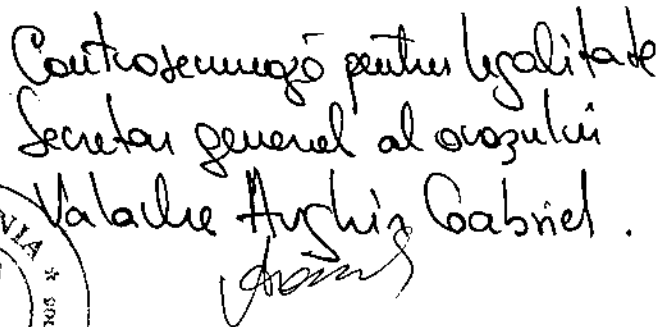 Contrasemnează pentru legalitate
Secretar general al orașului
Valache Gabriel.
NIA *